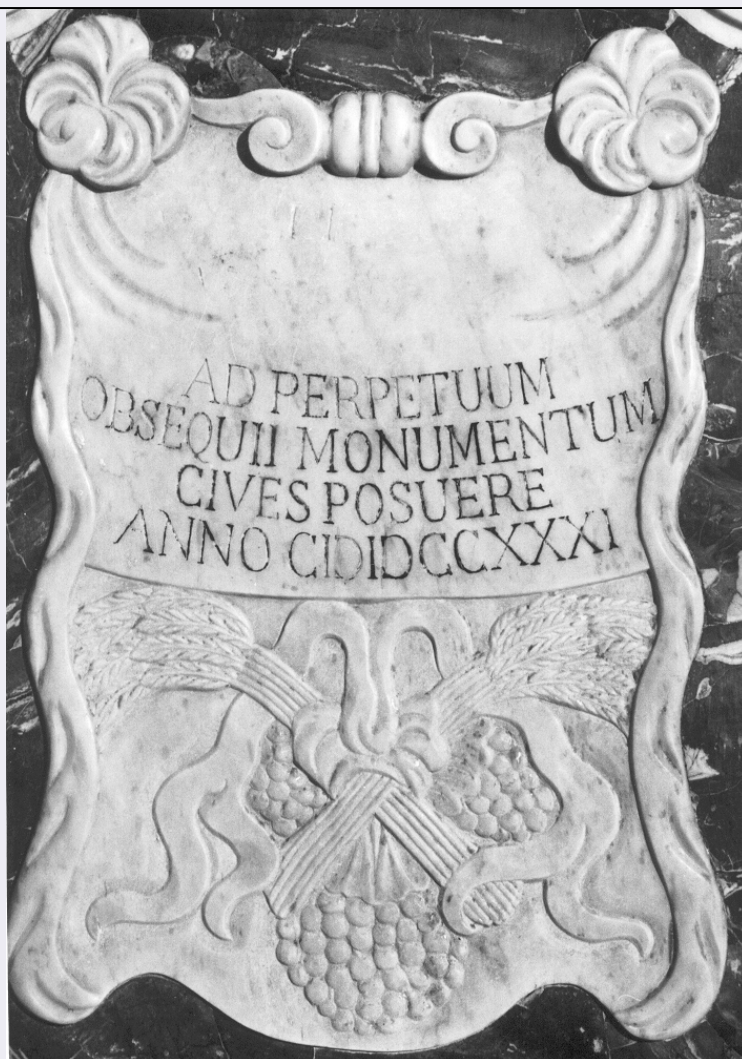 AD PERPETUUM
OBSEQUII MONUMENTUM
CIVES POSUERE
ANNO CIDIDCCXXXI